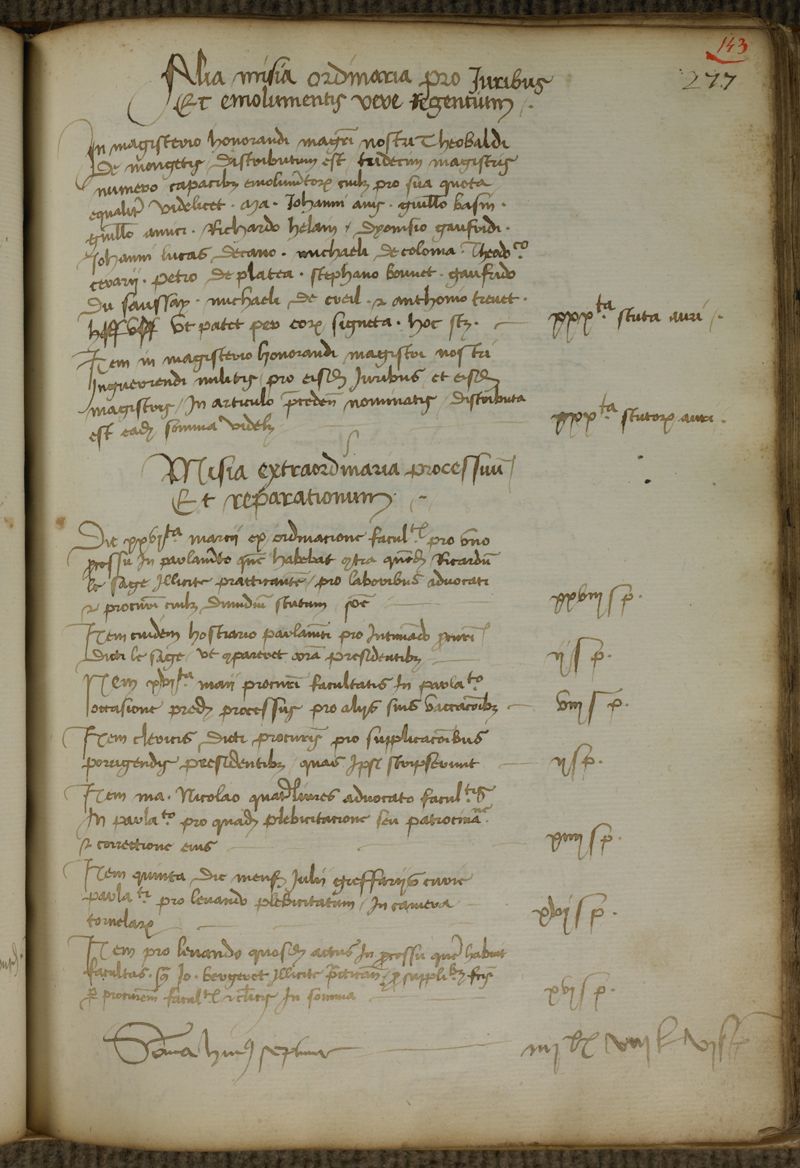 143
277
Alia misia ordinaria pro Juribus
Et emolumentis vere Regentium
In magisterio honorandi magri nostri Theobaldi
De mongetis distributum est tridecim magistris
numero capacibus emolumentorum cuilibet pro sua quota
equaliter videlicet . Ma . Johanni avis . guillo basin .
guillo amici . Richardo helain . dyonisio gaufridi .
Johanni lucas decano . michaeli de colonia . Theodorico
cerarii . petro de platea . stephano bonnet . gaufrido
du saussay . michaeli de creil . et anthonio trevet .
ut patet per eorum signeta . hoc scz . xxxta scuta auri
Item in magisterio honorandi magistri nostri
Inguerrendi militis pro eisdem Juribus et eisdem
magistris In articulo preceden nominatis distributa
est eadem somma videlz xxxta scutorum auri .
Misia extraordinaria processuum
Et reparationum
Die marcii ex ordinatione facultatis pro uno
processu In parlamento quem habebat contra quendam Ricardum
le sage Illicite practicantem pro laboribus advocati
et procuris cuilibet dimidium scutum xxviii s p .
Item cuidem hostiario parlamti pro Intimado procuri
Dicti le sage ut compareret coram presidentibus ii s p .
Item maii procuri facultatis In parlato
occasione predi processus pro aliis suis vaccacionibus viii s p .
Item clericis dicti procuris pro supplicacionibus
porrigendis presidentibus quas Ipsi scripserunt ii s p .
Item ma . Nicolao advocato facultatis
In parlato pro quadam plebicitatione seu patrocina
et correctione eius s p .
Item quinta die mensis Julii greffariis curie
parlati pro levando plebicitatum In camera
tornelarum s p .
Item pro levando quosdam actus In processu quem habuit
facultas . Jo . bergeret Illicite
procurem facultatis et clicis In somma xvi s p .
Soma huius septime iiii lb viii s vi s p